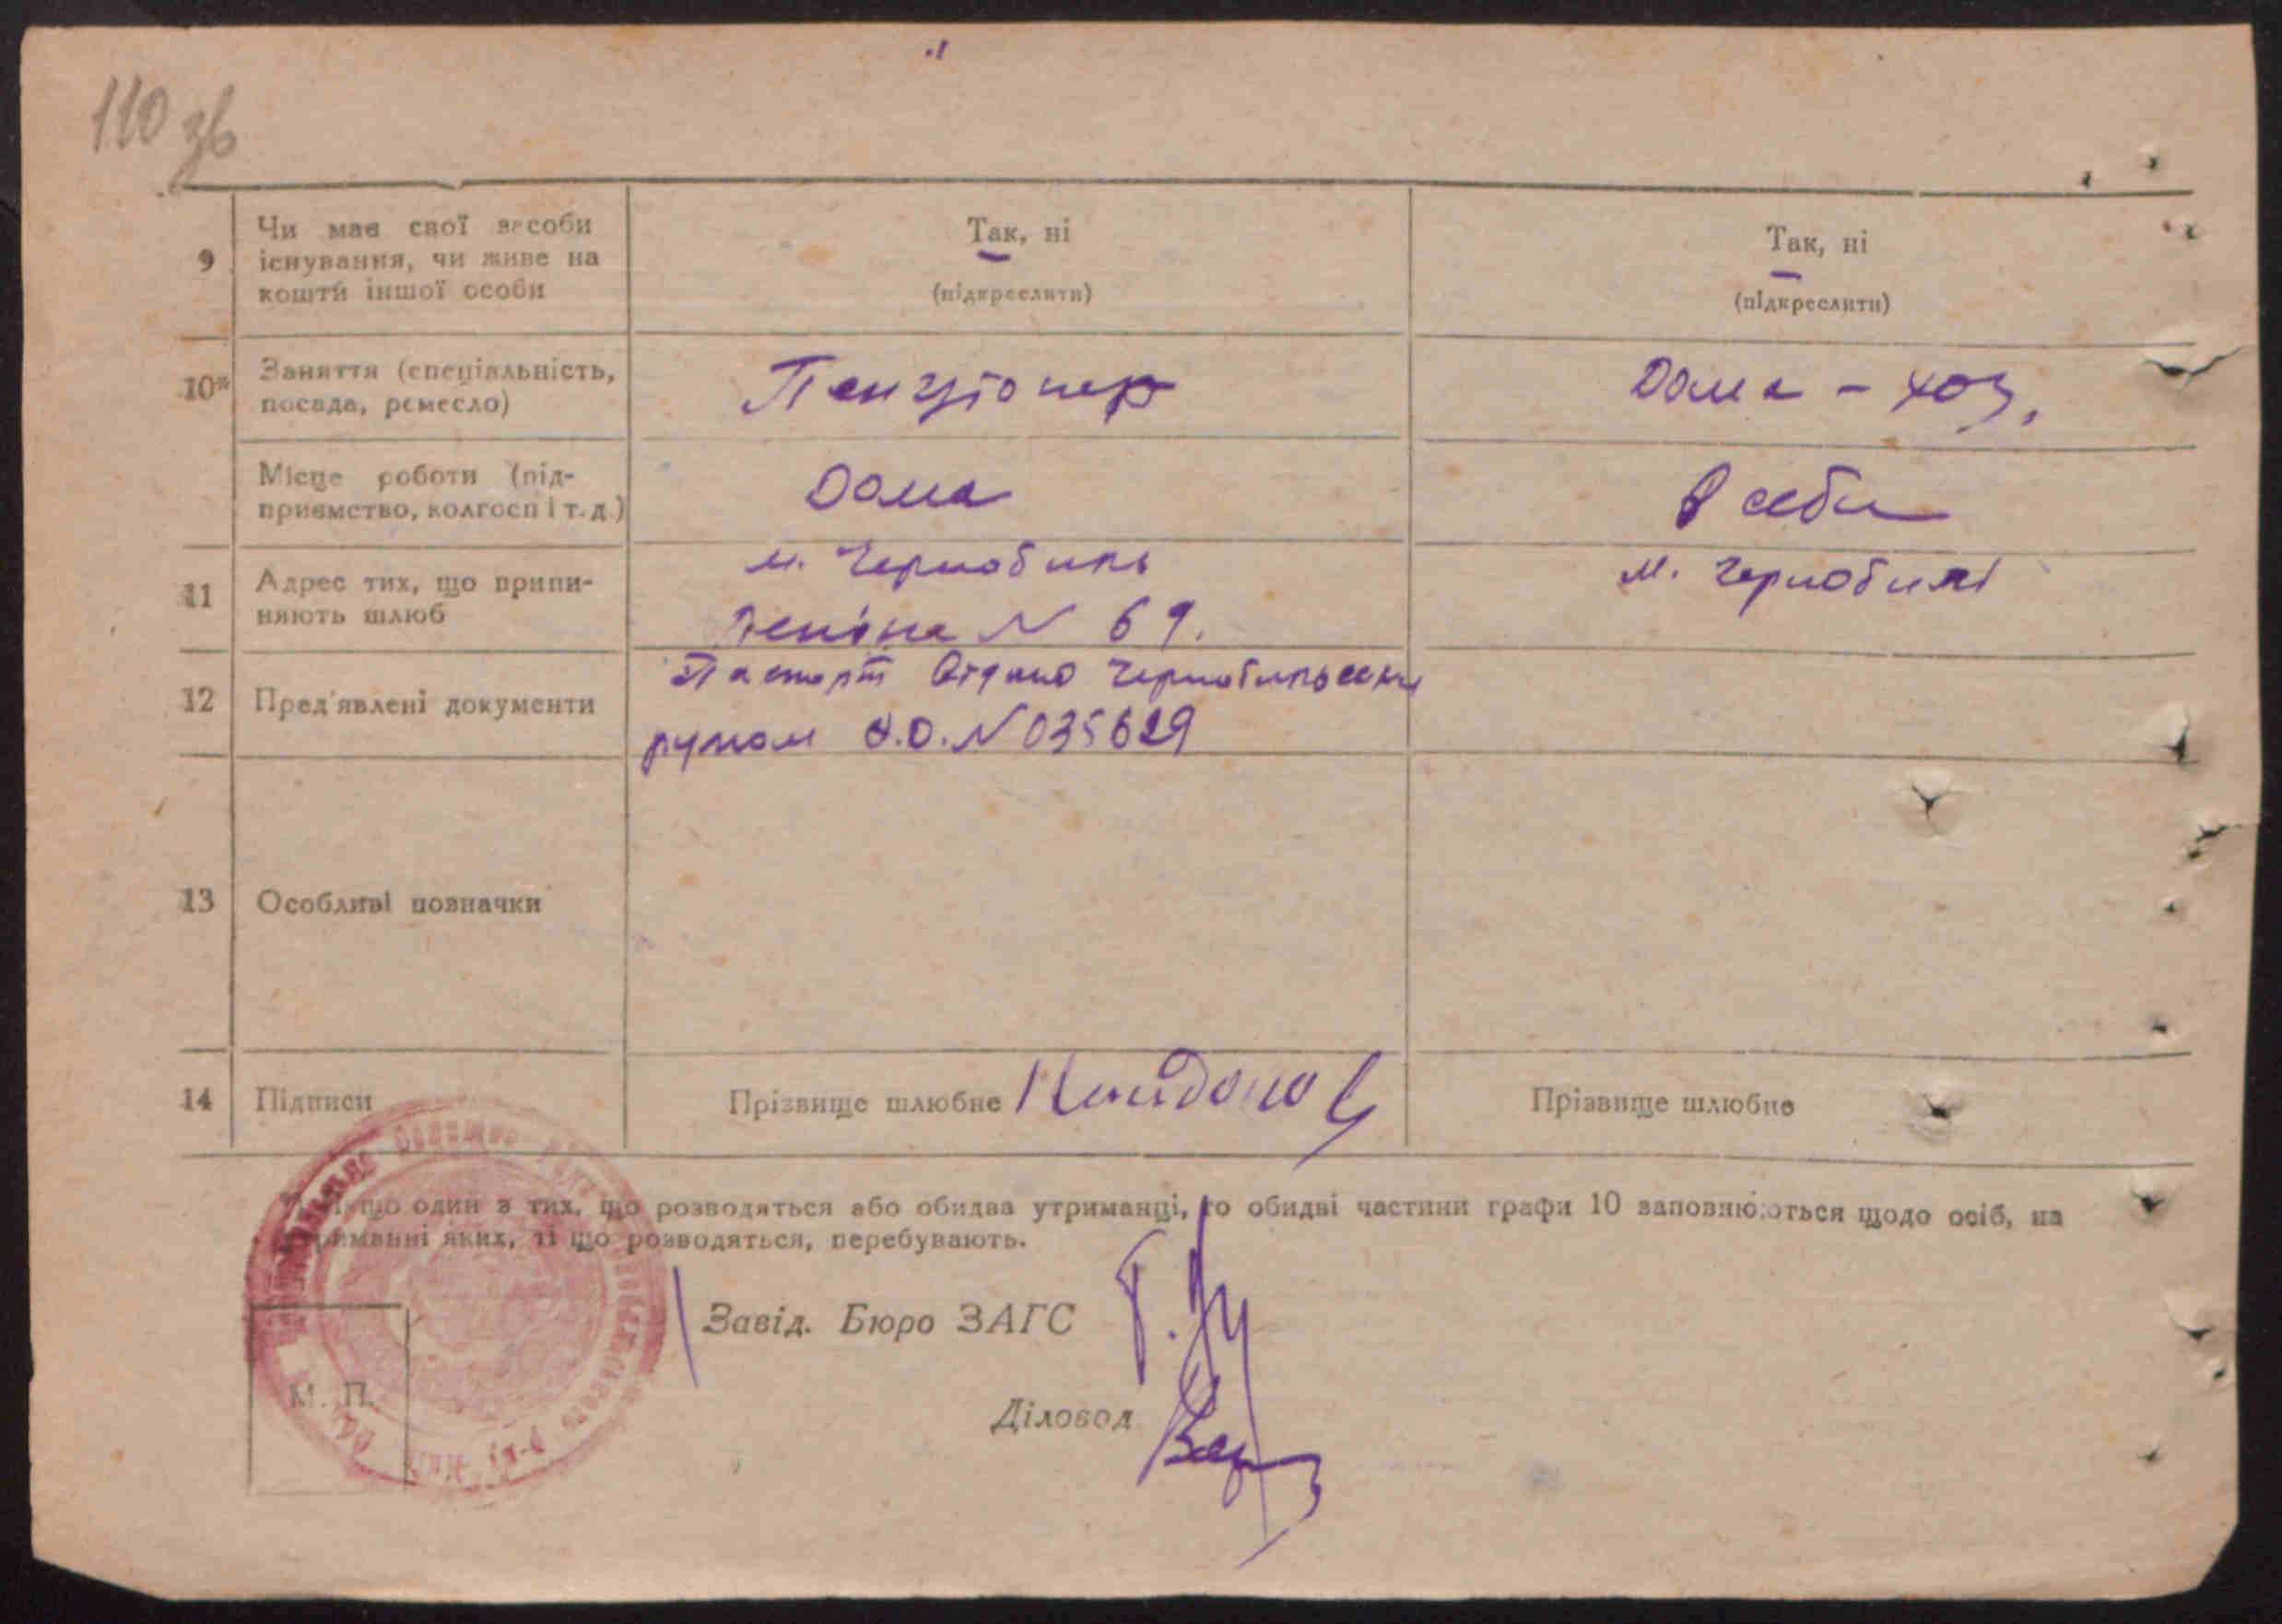 110 зв
9 Чи має свої засоби Так, ні Так, ні
існування, чи живе на
кошти іншої особи (підкреслити) (підкреслити)
10* Заняття (спеціальність, Пенгіонер Дома - хоз.
посада, ремесло)
Місце роботи (під- Дома В себи
приємство, колгосп і т. д.)
11 Адрес тих, що припи- м. Чернобиль м. Чернобилі
няють шлюб Леніна N 69.
12 Пред'явлені документи Паспорт Видано
N 035629
13 Особливі позначки
14 Підписи Прізвище шлюбне Прізвище шлюбне
* Якщо один з тих, що розводяться або обидва утриманці, то обидві частини графи 10 заповнюються щодо осіб, на
утриманні яких, ті що розводяться, перебувають.
Завід. Бюро ЗАГС
М. П.
Діловод